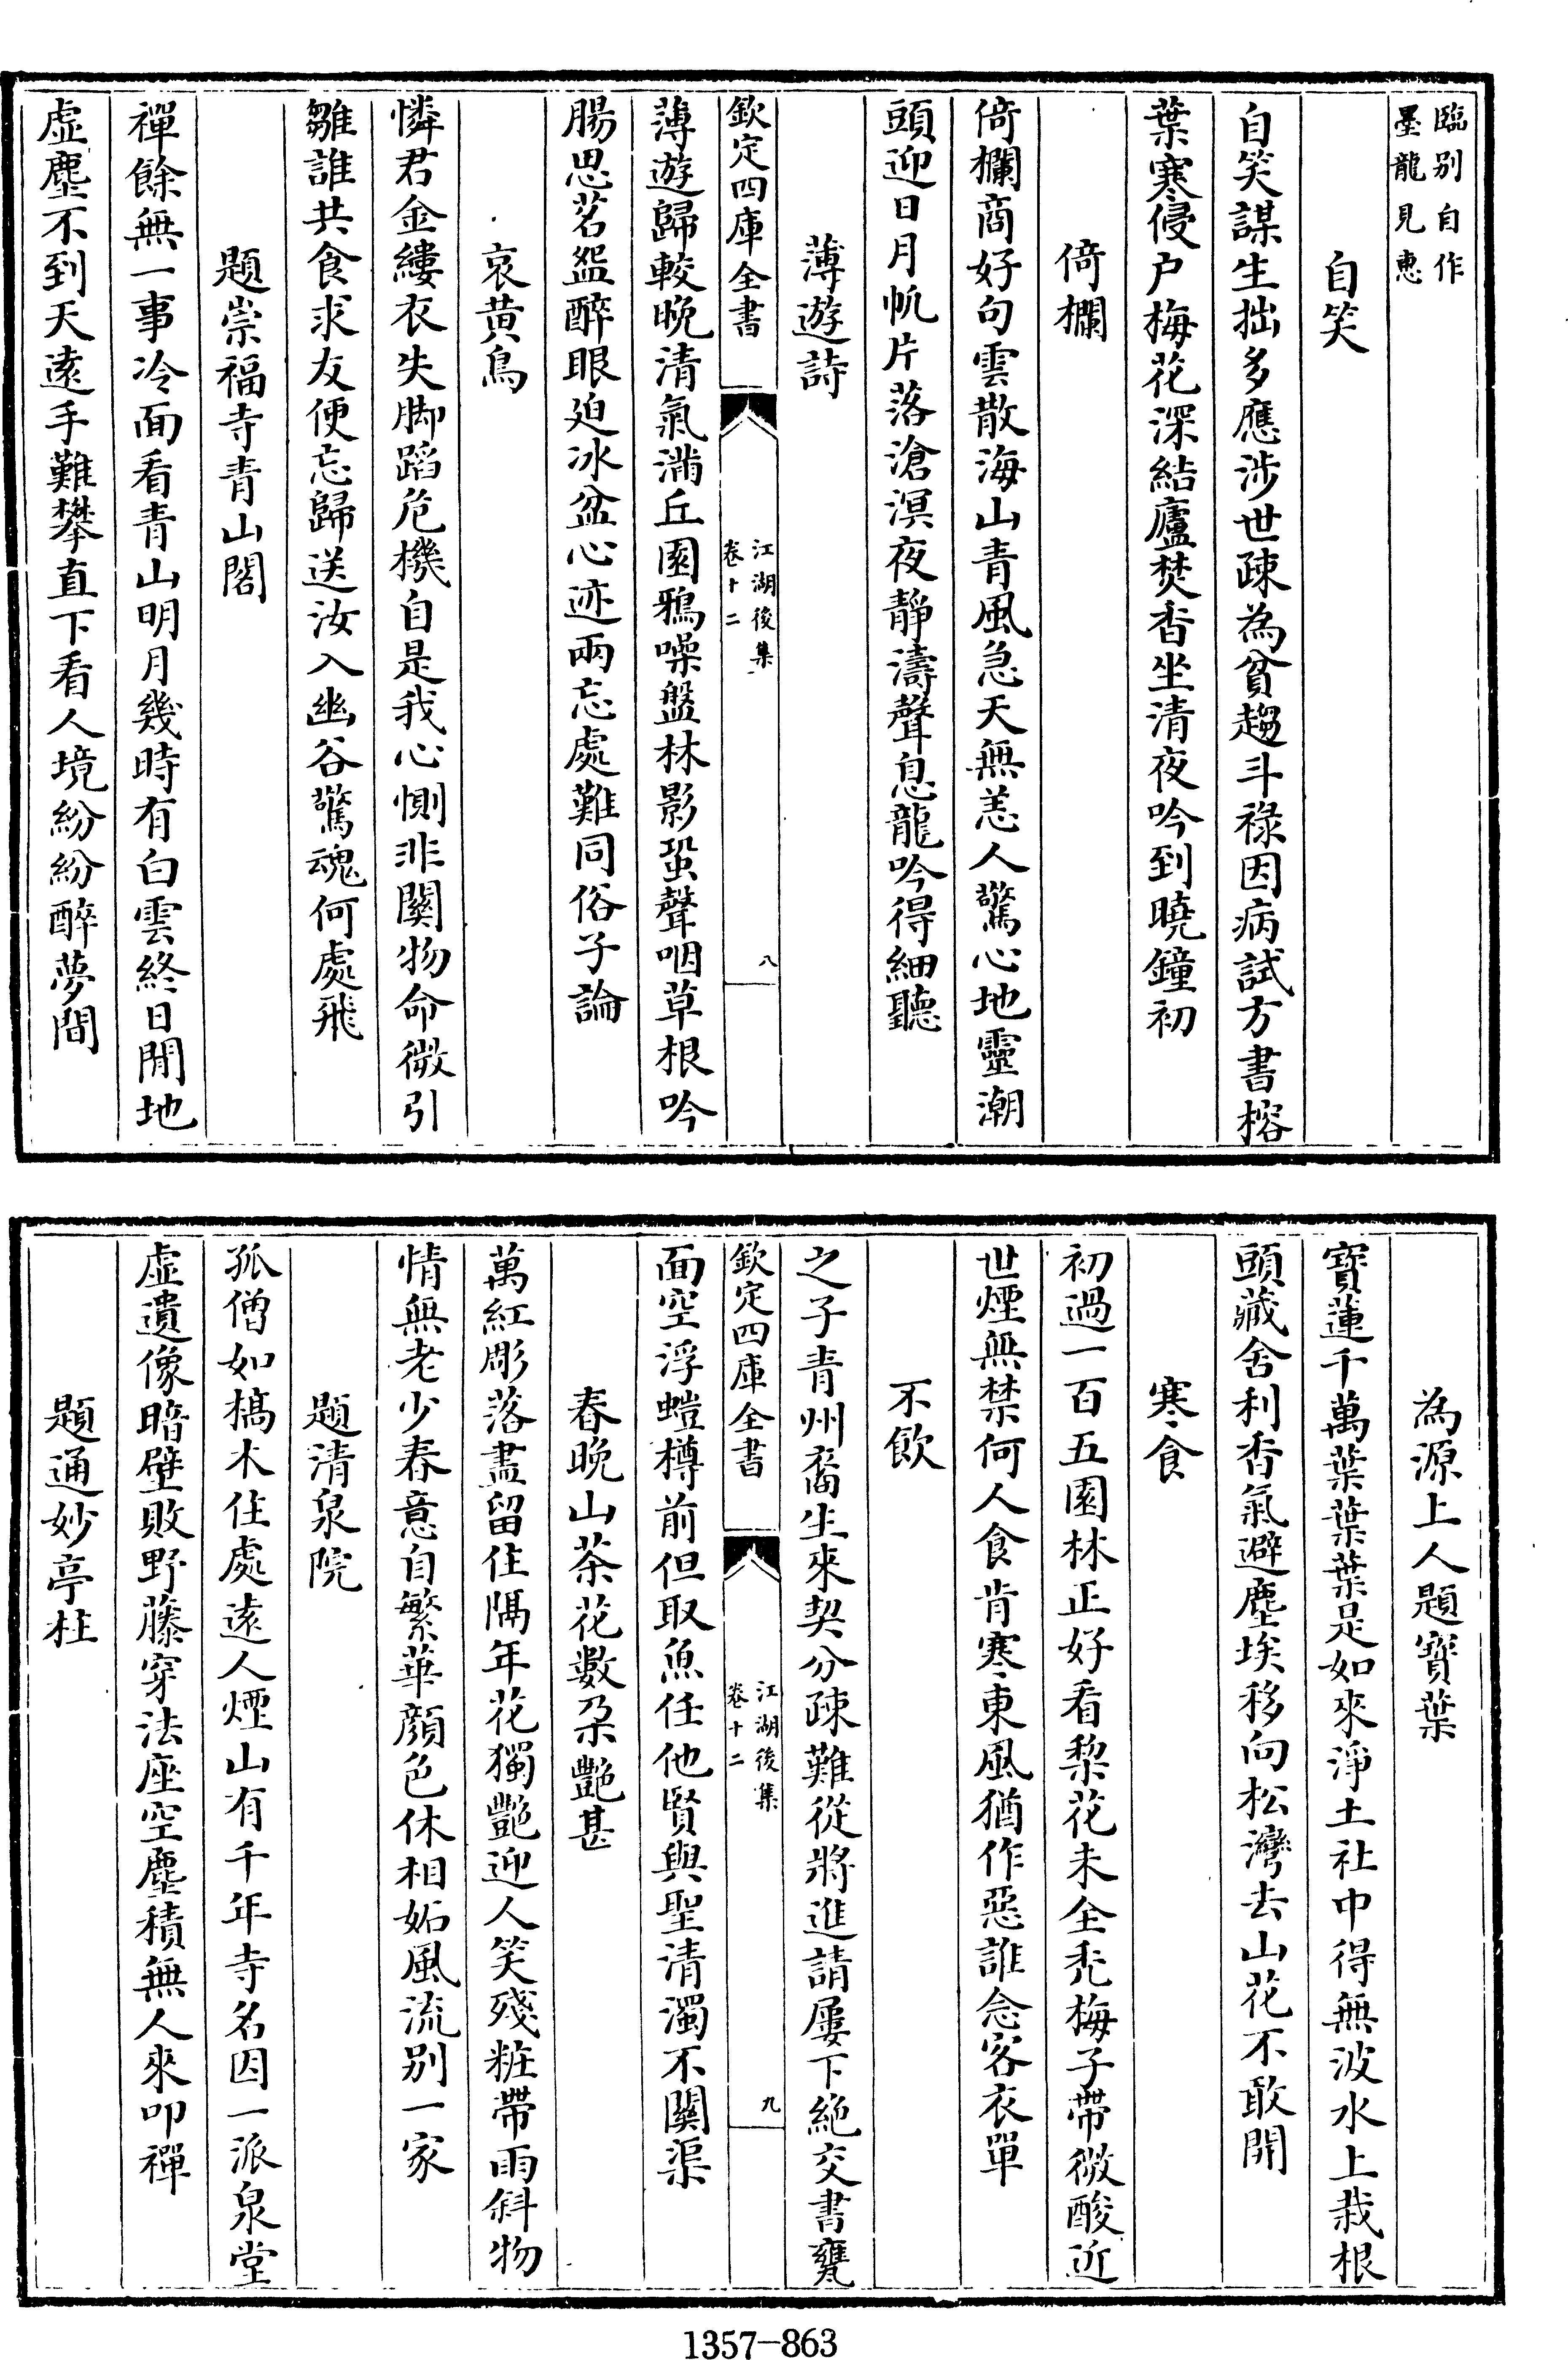 臨别自作
墨龍見惠
自笑
自笑謀生拙多應涉世疎為貧趨斗祿因病試方書榕
葉寒侵户梅花深結廬焚香坐清夜吟到曉鐘初
倚欄
倚欄商好句雲散海山青風急天無恙人驚心地靈潮
頭迎日月帆片落滄溟夜靜濤聲息龍吟得細聽
薄遊詩
欽定四庫全書
江湖後集
卷十二
八
薄遊歸較晚清氣滿丘園鴉噪盤林影蛩聲咽草根吟
腸思茗盌醉眼迫冰盆心迹兩忘處難同俗子論
哀黄鳥
憐君金縷衣失脚蹈危機自是我心惻非關物命微引
雛誰共食求友便忘歸送汝入幽谷驚魂何處飛
題崇福寺青山閣
禪餘無一事冷面看青山明月幾時有白雲終日閒地
虛塵不到天逺手難攀直下看人境紛紛醉夢間
為源上人題寳葉
寳蓮千萬葉葉葉是如來淨土社中得無波水上栽根
頭藏舍利香氣避塵埃移向松灣去山花不敢開
寒食
初過一百五園林正好看黎花未全秃梅子帶微酸近
世煙無禁何人食肯寒東風猶作惡誰念客衣單
不飲
之子青州裔生來契分疎難從將進請屢下絶交書甕
欽定四庫全書
江湖後集
卷十二
九
面空浮螘樽前但取魚任他賢與聖清濁不關渠
春晚山茶花數朶艷甚
萬紅彫落盡留住隔年花獨艷迎人笑殘粧帶雨斜物
情無老少春意自繁華顔色休相妬風流别一家
題清泉院
孤僧如槁木住處逺人煙山有千年寺名因一派泉堂
虛遺像暗壁敗野藤穿法座空塵積無人來叩禪
題通妙亭柱
1357-863